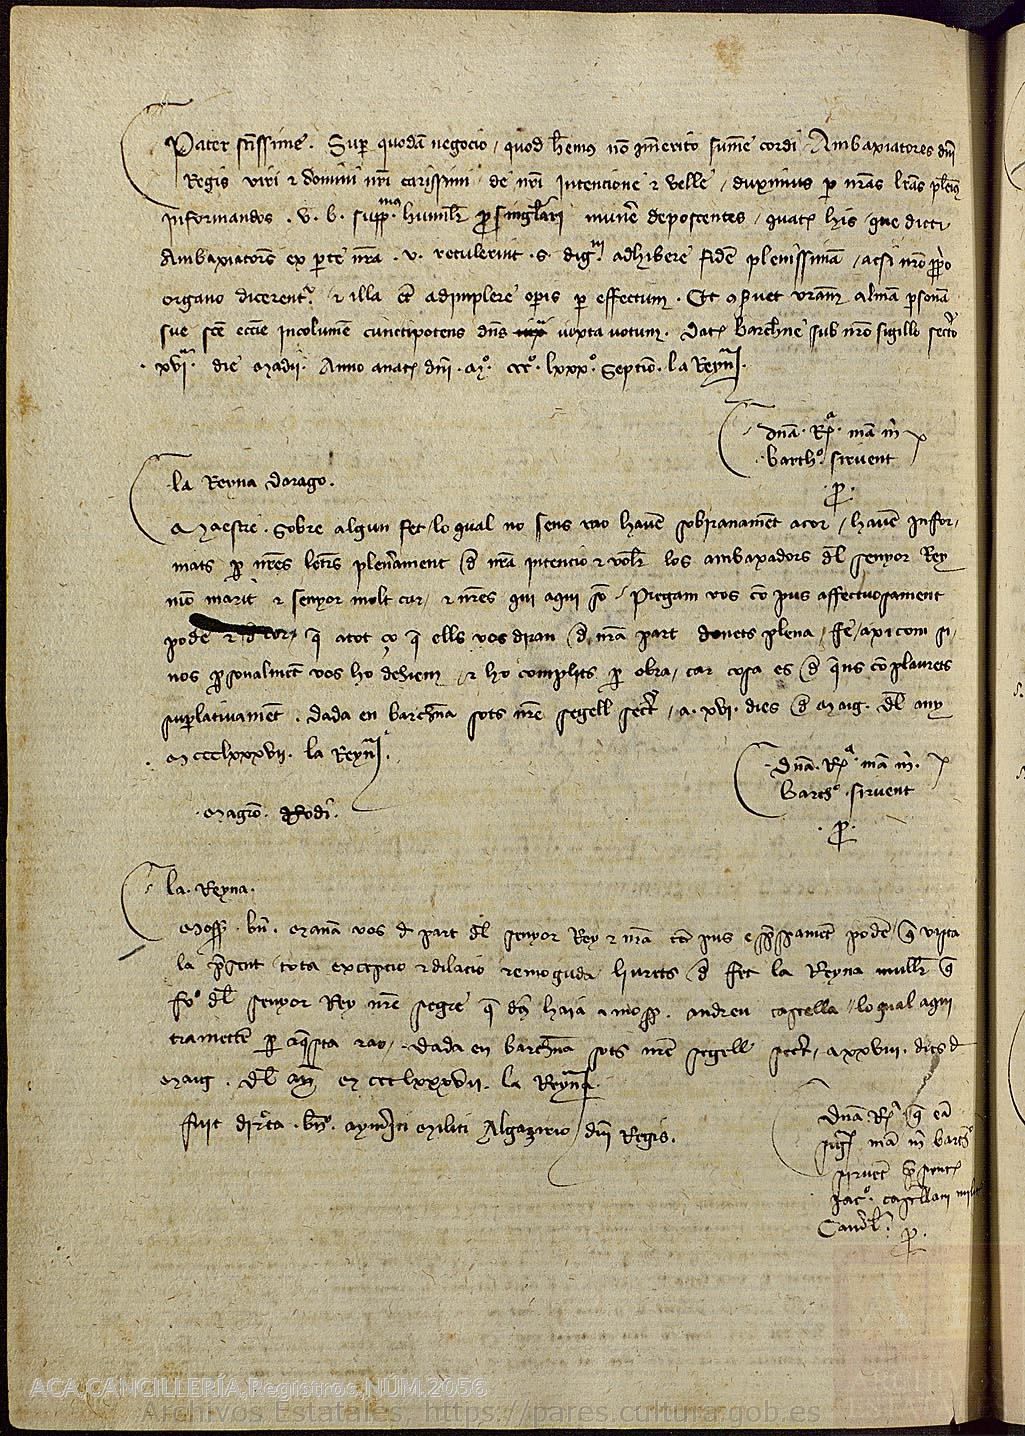 Pater sc̄issime. Sup quodā negocio / quod hēmus nō īmerito sūme cordi Ambaxiatores dn̄i
Regis viri ⁊ domini nr̄i carissimi de nr̄i intencione ⁊ velle / duximus p nr̄as lr̄as plen̄
informandos . v. b. supp. humilr̄ p singlari munē deposcentes / quatꝫ his que dicti
Ambaxiatores ex pte nr̄a . v. retulerint . s. dig. adhibere fidē plenissimā / acsi nr̄o pp̄o
organo dicerent ⁊ illa et̄ adimplere opis p effectum . Et 9servet vr̄am almā psonā
sue sc̄e ecc̄e incolumē cunctipotens dn̄s iuxta votum . Datꝫ barchn̄e sub nr̄o sigillo secto
xvi die Madii . Anno anatꝫ dn̄i . Mº. cccº. lxxxº. septiō . la Reyna .
dn̄a . Ra . mā m̄
barthº. sirvent
p.
la Reyna darago .
Maestre . Sobre algun fet / lo qual no sens rao havē sobiranamēt acor / havē infor
mats p nr̄es letrs plenament d nr̄a intencio ⁊ volr̄ los ambaxadors dl senyor Rey
mō marit ⁊ senyor molt car / ⁊ nr̄es qui aqui sō . Pregam vos cō pus affectuosament
podē q̄ atot ço q̄ ells vos diran d nr̄a part donets plena fe / axi com si
nos psonalmēt vos ho dehiem / ⁊ ho complits p obra / car cosa es d q̄ns cōplaurets
suplativamēt . dada en barchn̄a sots nr̄e segell secr / a . xvi . dies d Maig . dl any
Mccclxxxvii . la Reyna .
dn̄a . Ra . mā m̄ .
barthº. sirvent
p.
Magrō . Rodi .
la . Reyna .
Moss . bn̄ . Manā vos d part dl senyor Rey ⁊ nr̄a cō pus espssamēt podē q̄ vista
la psent tota excepcio ⁊ dilacio remoguda / liurets d fet la Reyna mullr̄ q̄
fo dl senyor Rey nr̄e segre haia a moss . andreu castella / lo qual aqui
trametē p aqsta rao / . dada en barchn̄a sots nr̄e segell secr / a xxviii . dies d
Maig . dl an̄ M ccclxxxvii . la Reyna .
fuit dircta . bnº. aymīci militi Algazirio dn̄i Regis .
Dn̄a . Ra q̄ eā
sigꝫ mā m̄ barthº
sirvēt psentꝫ
Jacº. castellani milit
Camlº. p.
ACA,CANCILLERÍA,Registros,NÚM.2056
Archivos Estatales, https://pares.cultura.gob.es